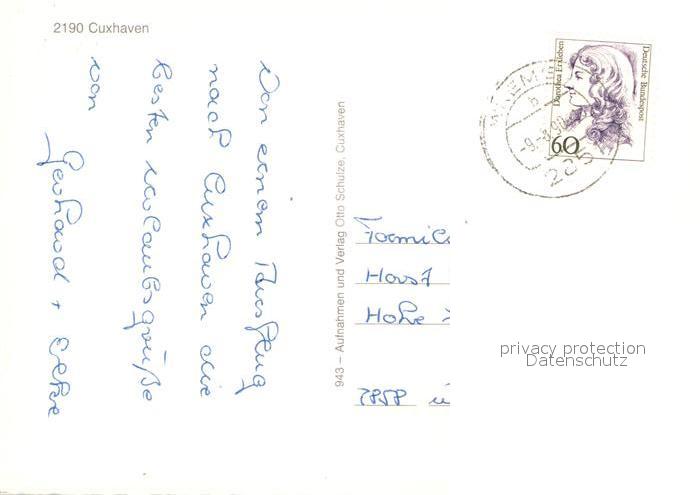 2190 Cuxhaven
Von einem Ausflug
nach Cuxhaven die
besten Urlaubsgrüße
von
Gerhard +
943 – Aufnahmen und Verlag Otto Schulze, Cuxhaven
Dorothea Erxleben
Deutsche Bundespost
60
Famil
Horst
Hohe
privacy protection
Datenschutz